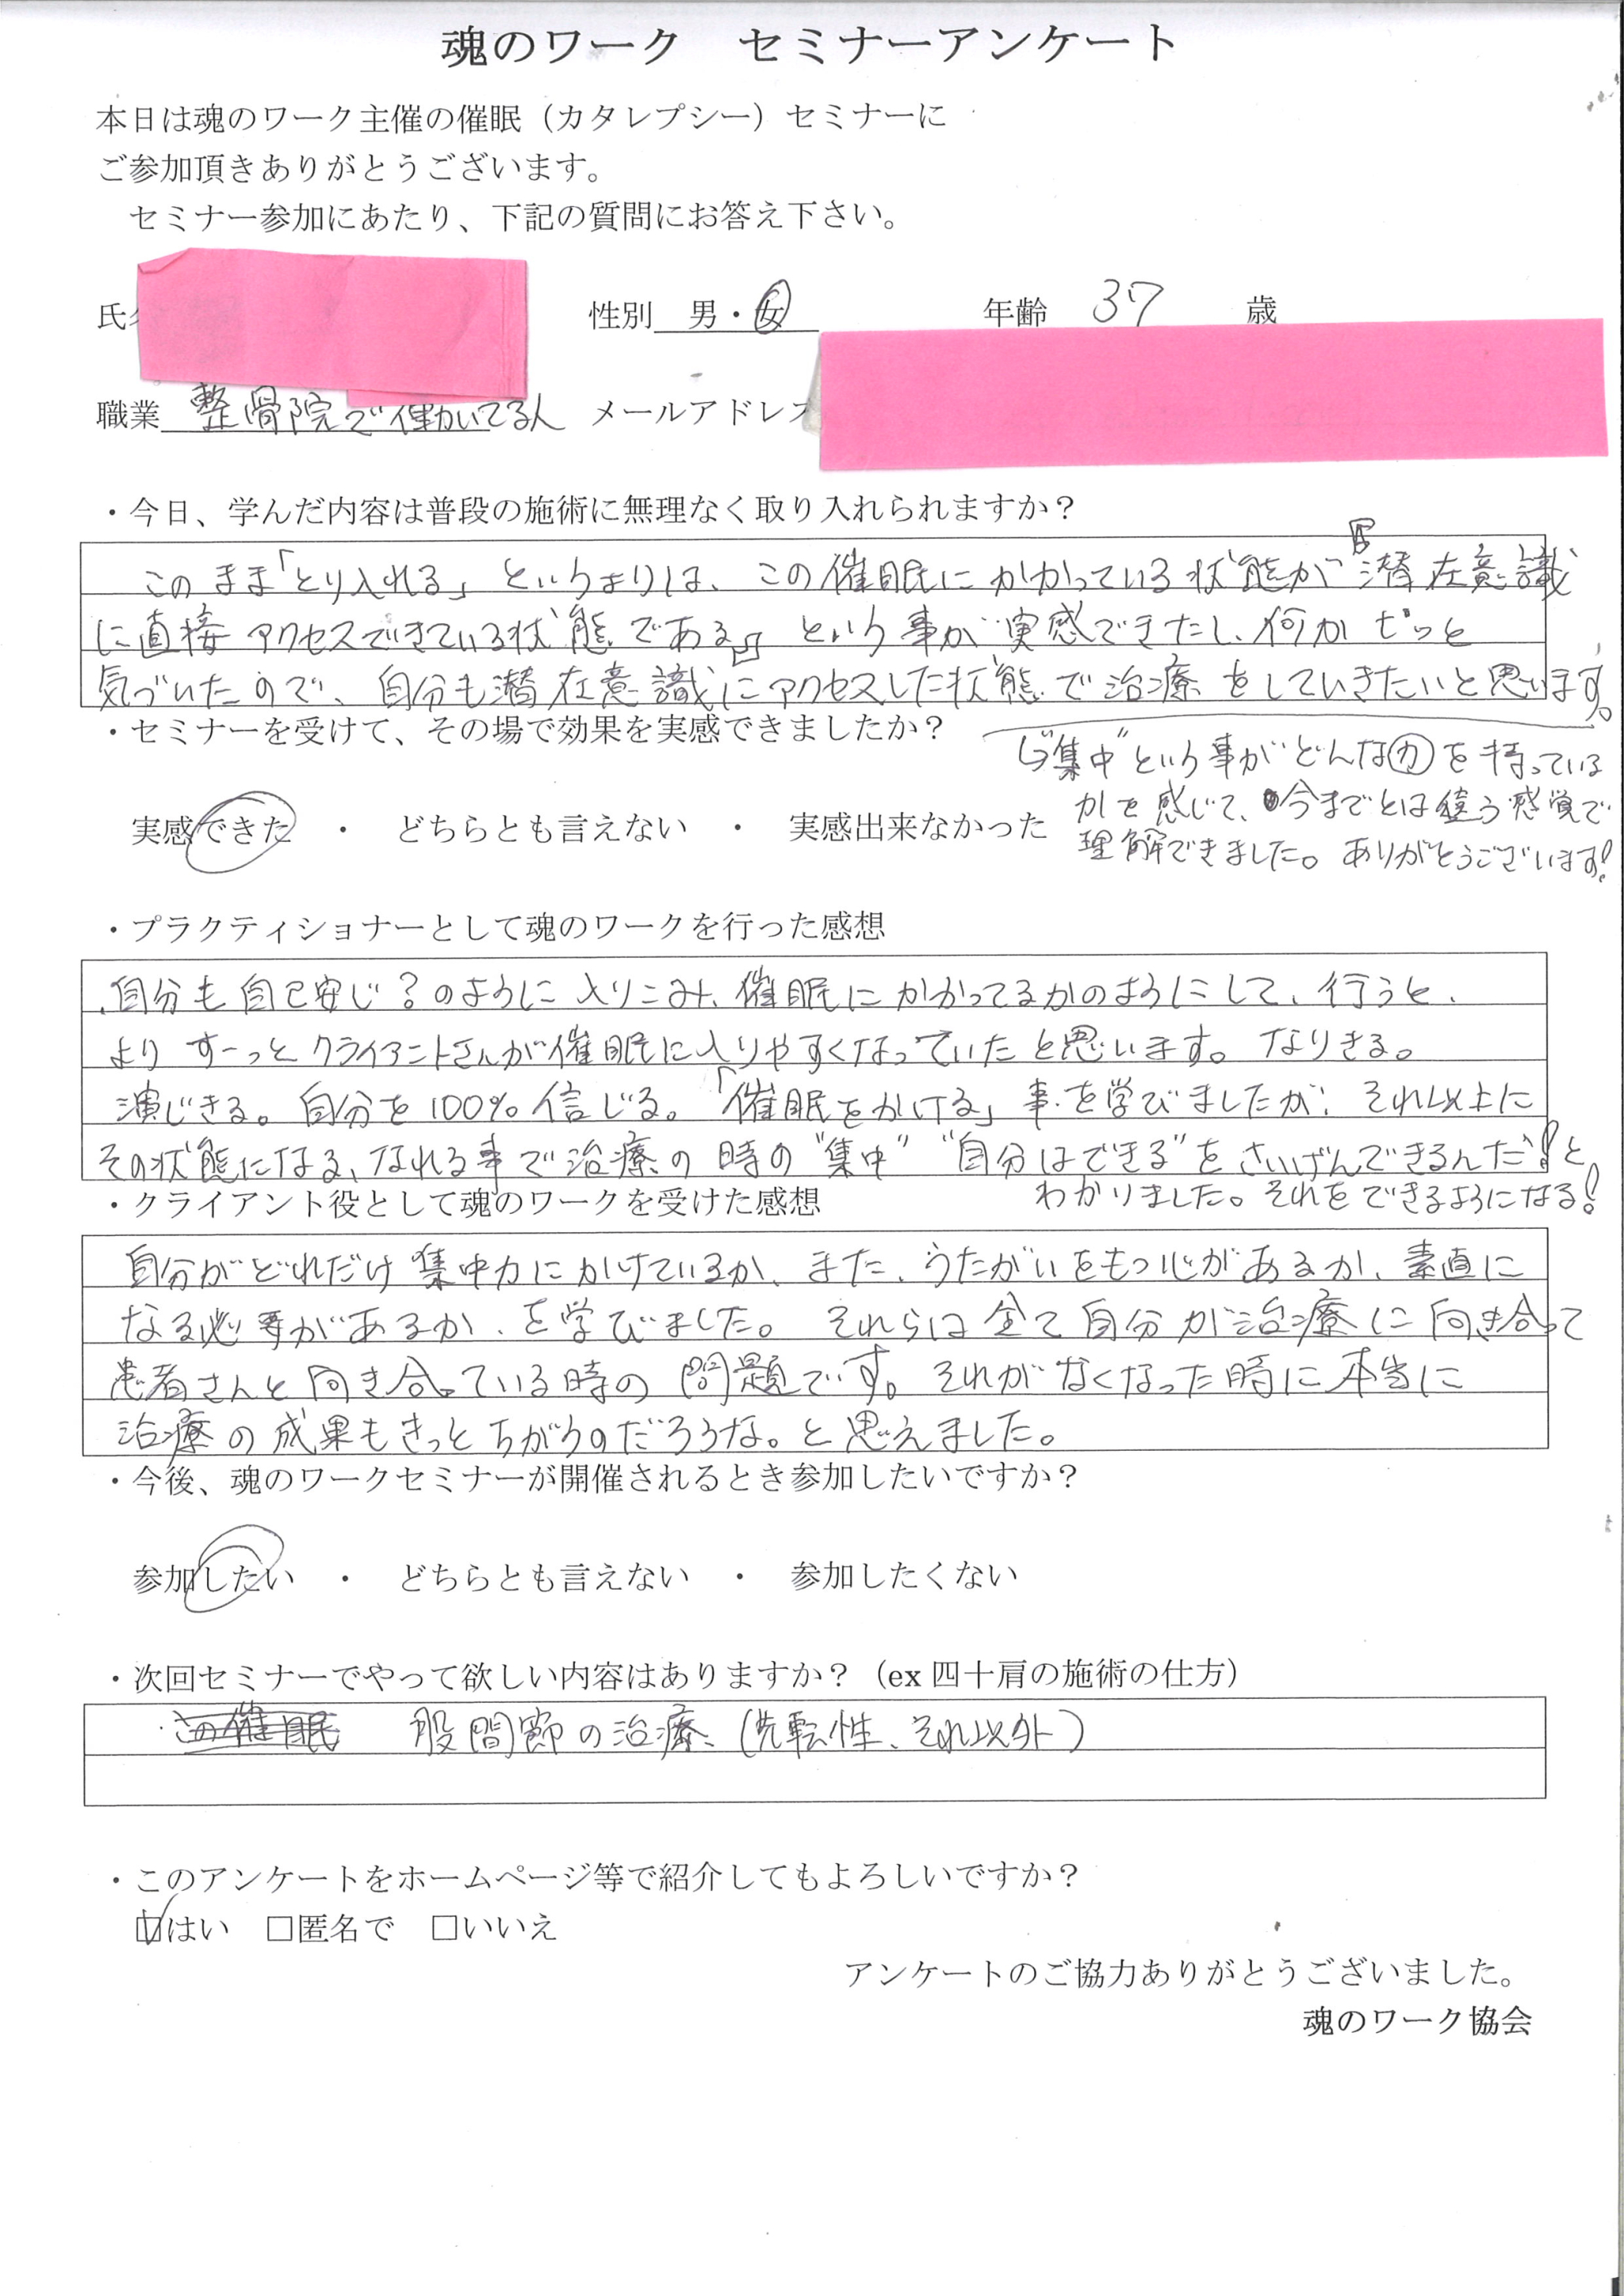 魂のワーク　セミナーアンケート
本日は魂のワーク主催の催眠（カタレプシー）セミナーに
ご参加頂きありがとうございます。
セミナー参加にあたり、下記の質問にお答え下さい。
氏 性別 男・女 年齢 37 歳
職業 整骨院で働いてる人 メールアドレス
・今日、学んだ内容は普段の施術に無理なく取り入れられますか？
このまま「とり入れる」というよりは、この催眠にかかっている状態が『潜在意識
に直接アクセスできている状態である』という事が実感できたし、何かピッと
気づいたので、自分も潜在意識にアクセスした状態で治療をしていきたいと思います。
・セミナーを受けて、その場で効果を実感できましたか？
↳"集中"という事がどんな力を持っている
かを感じて、今までとは違う感覚で
理解できました。ありがとうございます!
実感できた ・ どちらとも言えない ・ 実感出来なかった
・プラクティショナーとして魂のワークを行った感想
自分も自己安じ？のように入りこみ、催眠にかかってるかのようにして、行うと、
より すーっとクライアントさんが催眠に入りやすくなっていたと思います。なりきる。
演じきる。自分を100%信じる。「催眠をかける」事を学びましたが、それ以上に
その状態になる、なれる事で治療の時の"集中""自分はできる"をさいげんできるんだ!と
わかりました。それをできるようになる!
・クライアント役として魂のワークを受けた感想
自分がどれだけ集中力にかけているか、また、うたがいをもつ心があるか、素直に
なる必要があるか、を学びました。それらは全て自分が治療に向き合って
患者さんと向き合っている時の問題です。それがなくなった時に本当に
治療の成果もきっとちがうのだろうな。と思えました。
・今後、魂のワークセミナーが開催されるとき参加したいですか？
参加したい ・ どちらとも言えない ・ 参加したくない
・次回セミナーでやって欲しい内容はありますか？（ex 四十肩の施術の仕方）
この催眠 股間節の治療（先転性、それ以外）
・このアンケートをホームページ等で紹介してもよろしいですか？
☑はい □匿名で □いいえ
アンケートのご協力ありがとうございました。
魂のワーク協会